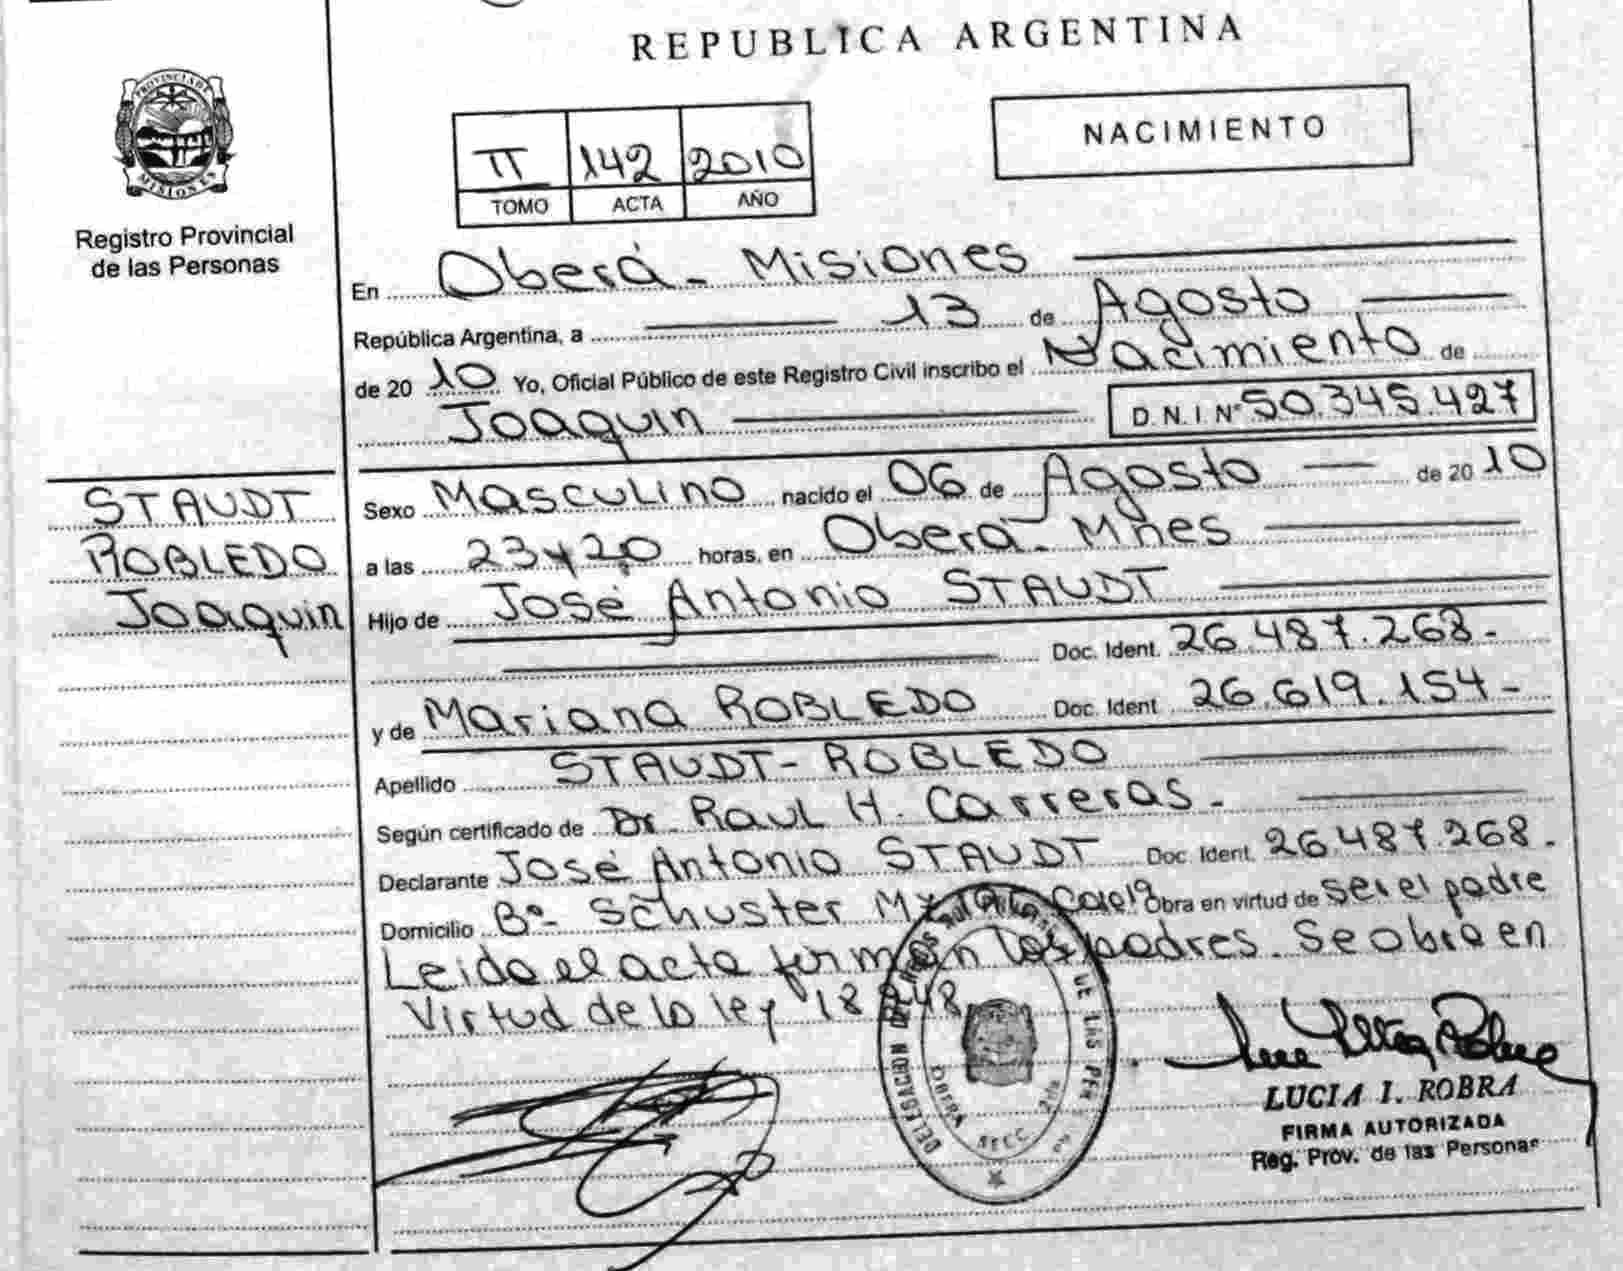 REPUBLICA ARGENTINA
PROVINCIA DE
MISIONES
Registro Provincial
de las Personas
II 142 2010
TOMO ACTA AÑO
NACIMIENTO
En Oberá - Misiones
República Argentina, a 13 de Agosto
de 2010 Yo, Oficial Público de este Registro Civil inscribo el Nacimiento de
Joaquin D.N.I. Nº 50.345.427
STAUDT
ROBLEDO
Joaquin
Sexo Masculino nacido el 06 de Agosto de 2010
a las 23 y 20 horas, en Oberá - Mnes
Hijo de José Antonio STAUDT
Doc. Ident. 26.487.268-
y de Mariana ROBLEDO Doc. Ident 26.619.154-
Apellido STAUDT - ROBLEDO
Según certificado de Dr. Raul H. Carreras.-
Declarante José Antonio STAUDT Doc. Ident. 26.487.268.
Domicilio Bº Schuster Obra en virtud de ser el padre
Leida el acta firman los padres. Se obra en
Virtud de la ley 18248
DELEGACION DE LAS
OBERA
SECC
LUCIA I. ROBRA
FIRMA AUTORIZADA
Reg. Prov. de las Personas